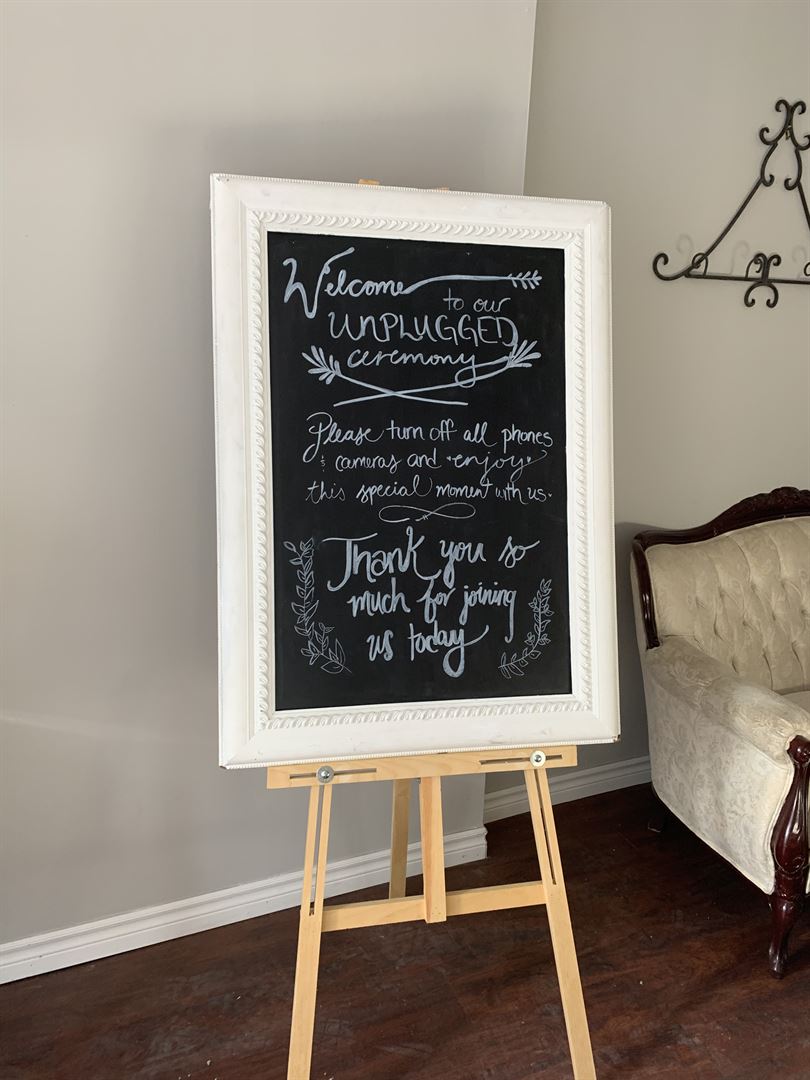 Welcome
to our
UNPLUGGED
ceremony
Please turn off all phones
& cameras and "enjoy"
this special moment with us.
Thank you so
much for joining
us today